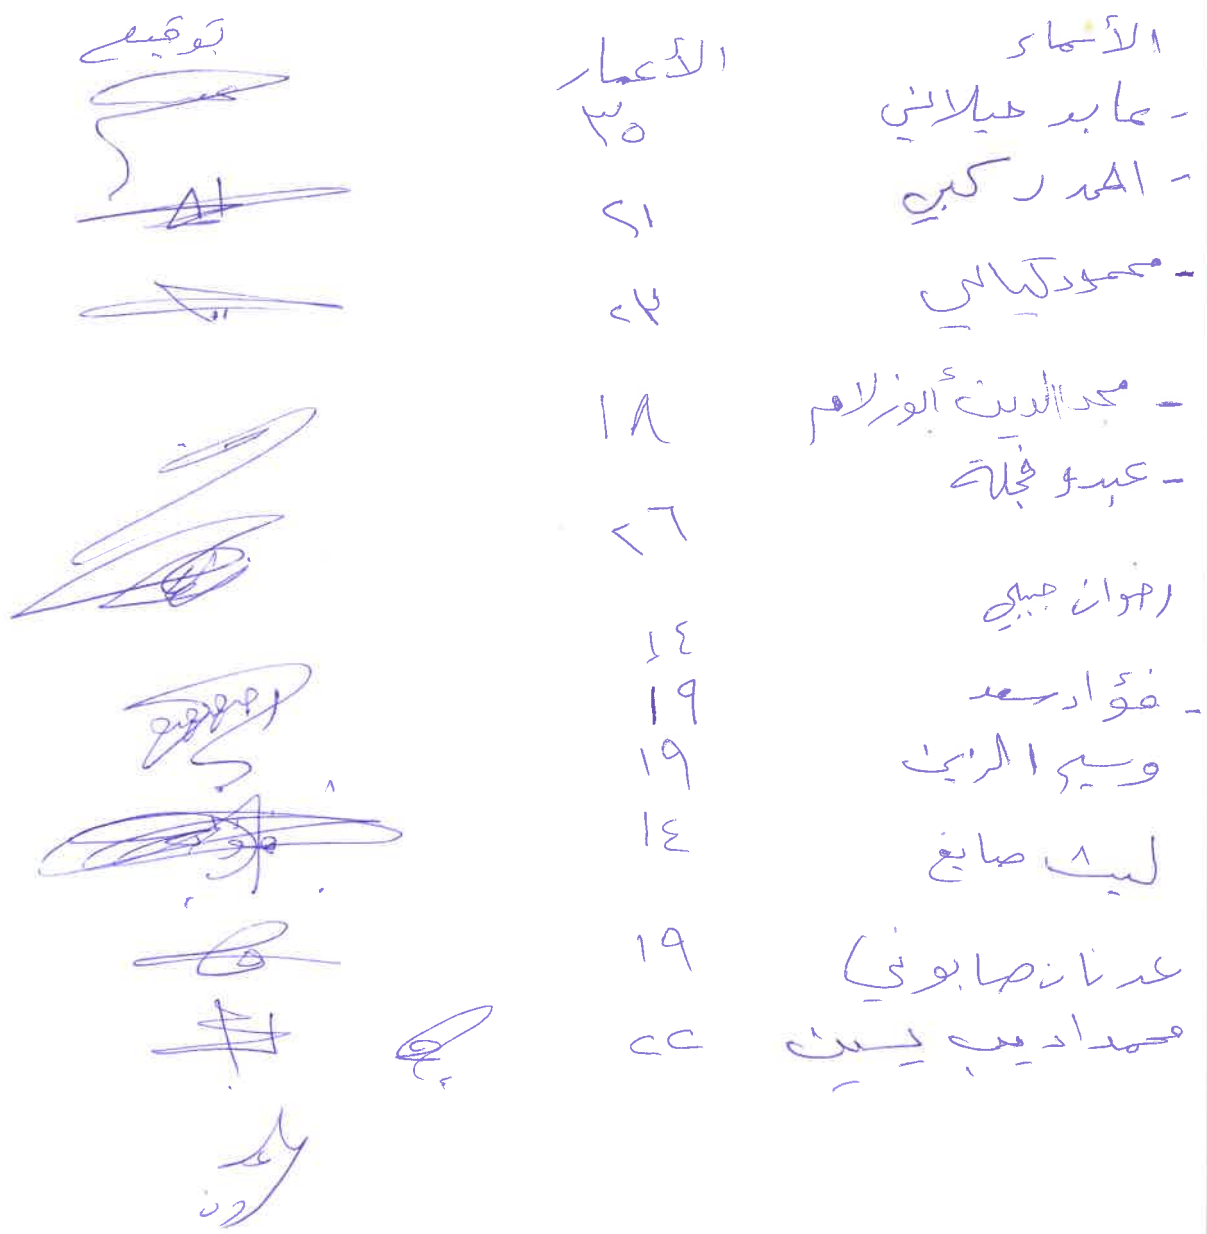 الأسماء الأعمار توقيع
- عابد جيلاني ٣٥
- احمد ركبي ٢١
- محمود كيالي ٢٣
- محمد الدين أبوزلام ١٨
- عبدو فجلة ٢٦
رضوان حبيبي ١٤
- فؤاد سعد ١٩
وسيم الزين ١٩
ليث صايغ ١٤
عدنان صابوني ١٩
محمد اديب يسين ٢٢